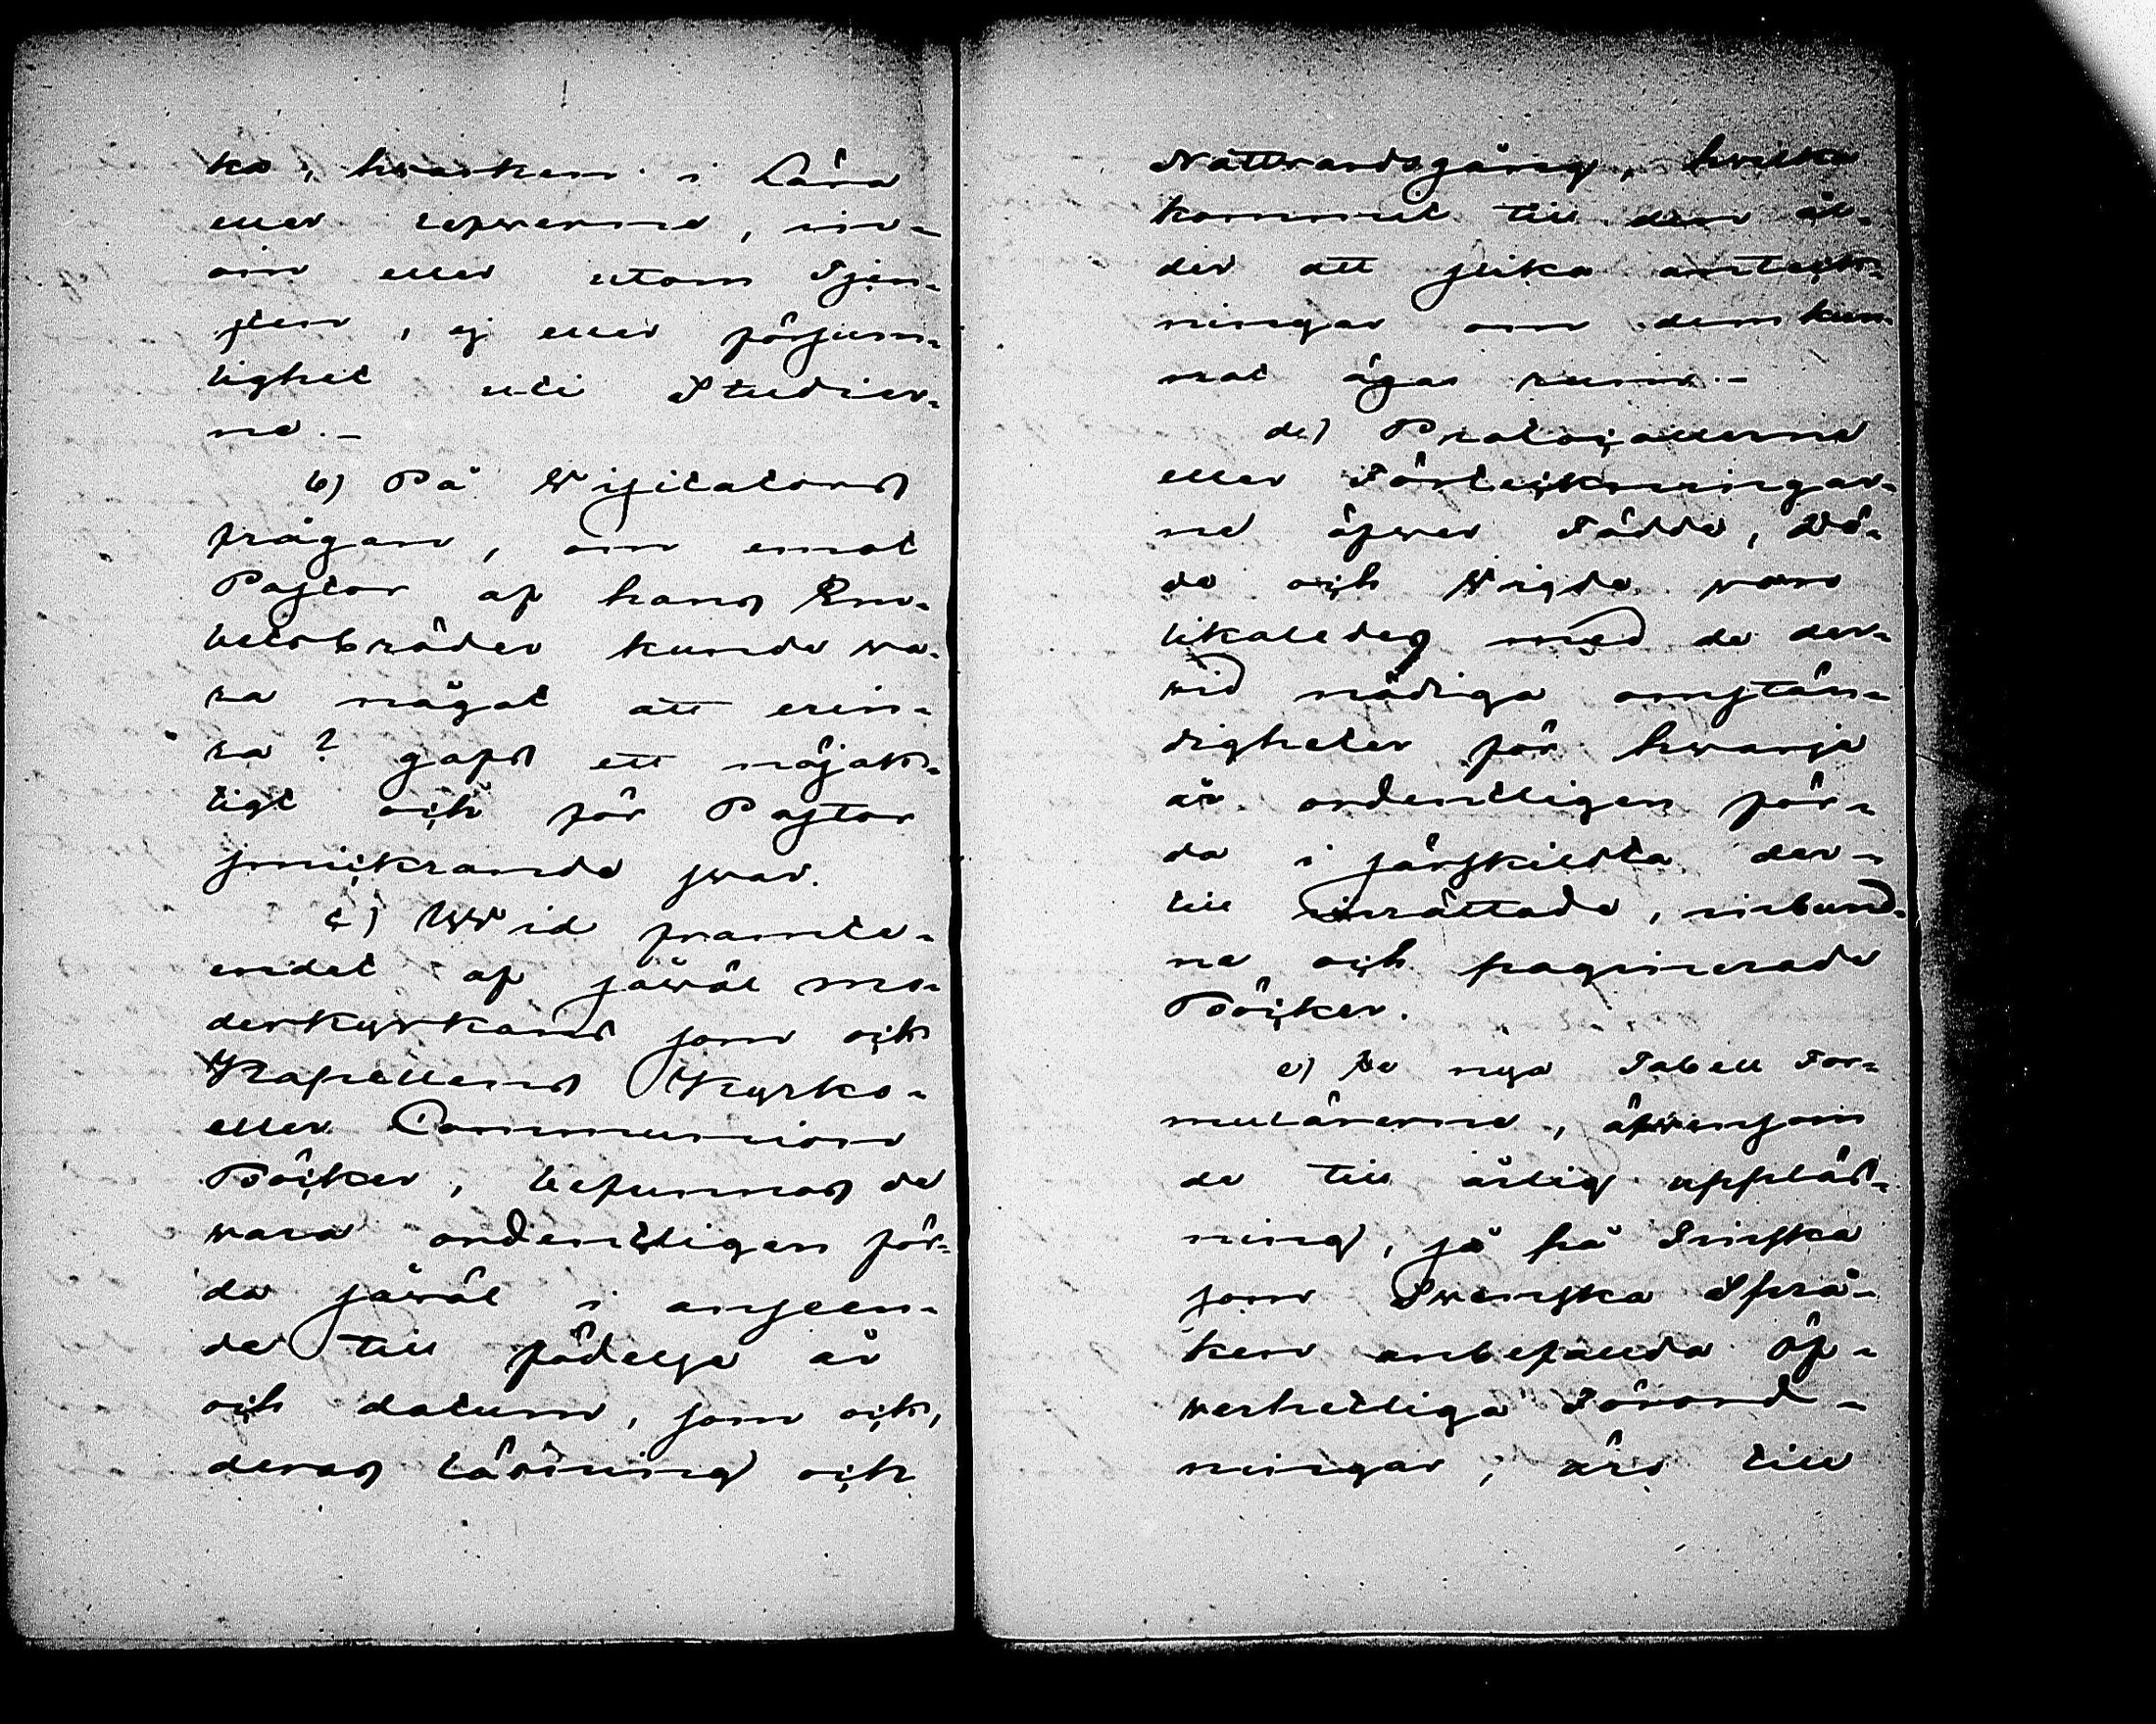 ka, hwarken i Lära
eller lefwerne, in-
om eller utom Tjen-
sten, ej eller försum-
lighet uti Studier-
na.-
b) På Wisitators
frågan, om emot
Pastor af hans Em-
betsbröder kunde wa-
ra något att erin-
ra? gafs ett nöjak-
tigt och för Pastor
smickrande swar.
c) Wid framte-
endet af såwäl mo-
derkyrkans som och
Kapellens Kyrko-
eller Communion
Böcker, befunnos de
wara ordentligen för-
da såwäl i anseen-
de till födelse år
och datum, som och,
deras läsning och
Nattwardsgång, hwilka
kommit till den ål-
der att slika anteck-
ningar om dem kun-
nat ägas rum.-
d) Protocollerne
eller Förteckningar-
ne öfwer Födde, Dö-
de och Wigde woro
likaledes med de der-
wid nödiga omstän-
digheter för hwarje
år ordentligen för-
da i särskildta der-
till inrättade, inbund-
ne och paginerade
Böcker.
e) De nya Tabell For-
mulärerne, äfwensom
de till årlig uppläs-
ning, så på Finska
som Swenska Språ-
ken anbefallda Öf-
werhetliga Förord-
ningar, äro till